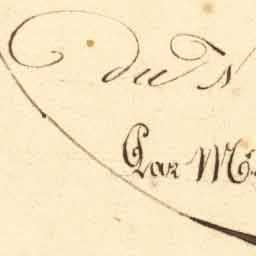 du S
Par Mr